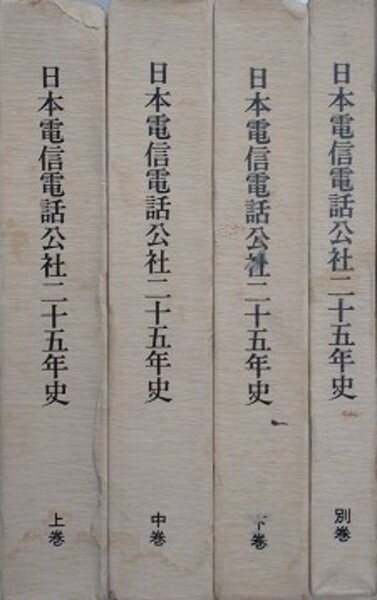 日本電信電話公社二十五年史
上巻
日本電信電話公社二十五年史
中巻
日本電信電話公社二十五年史
下巻
日本電信電話公社二十五年史
別巻